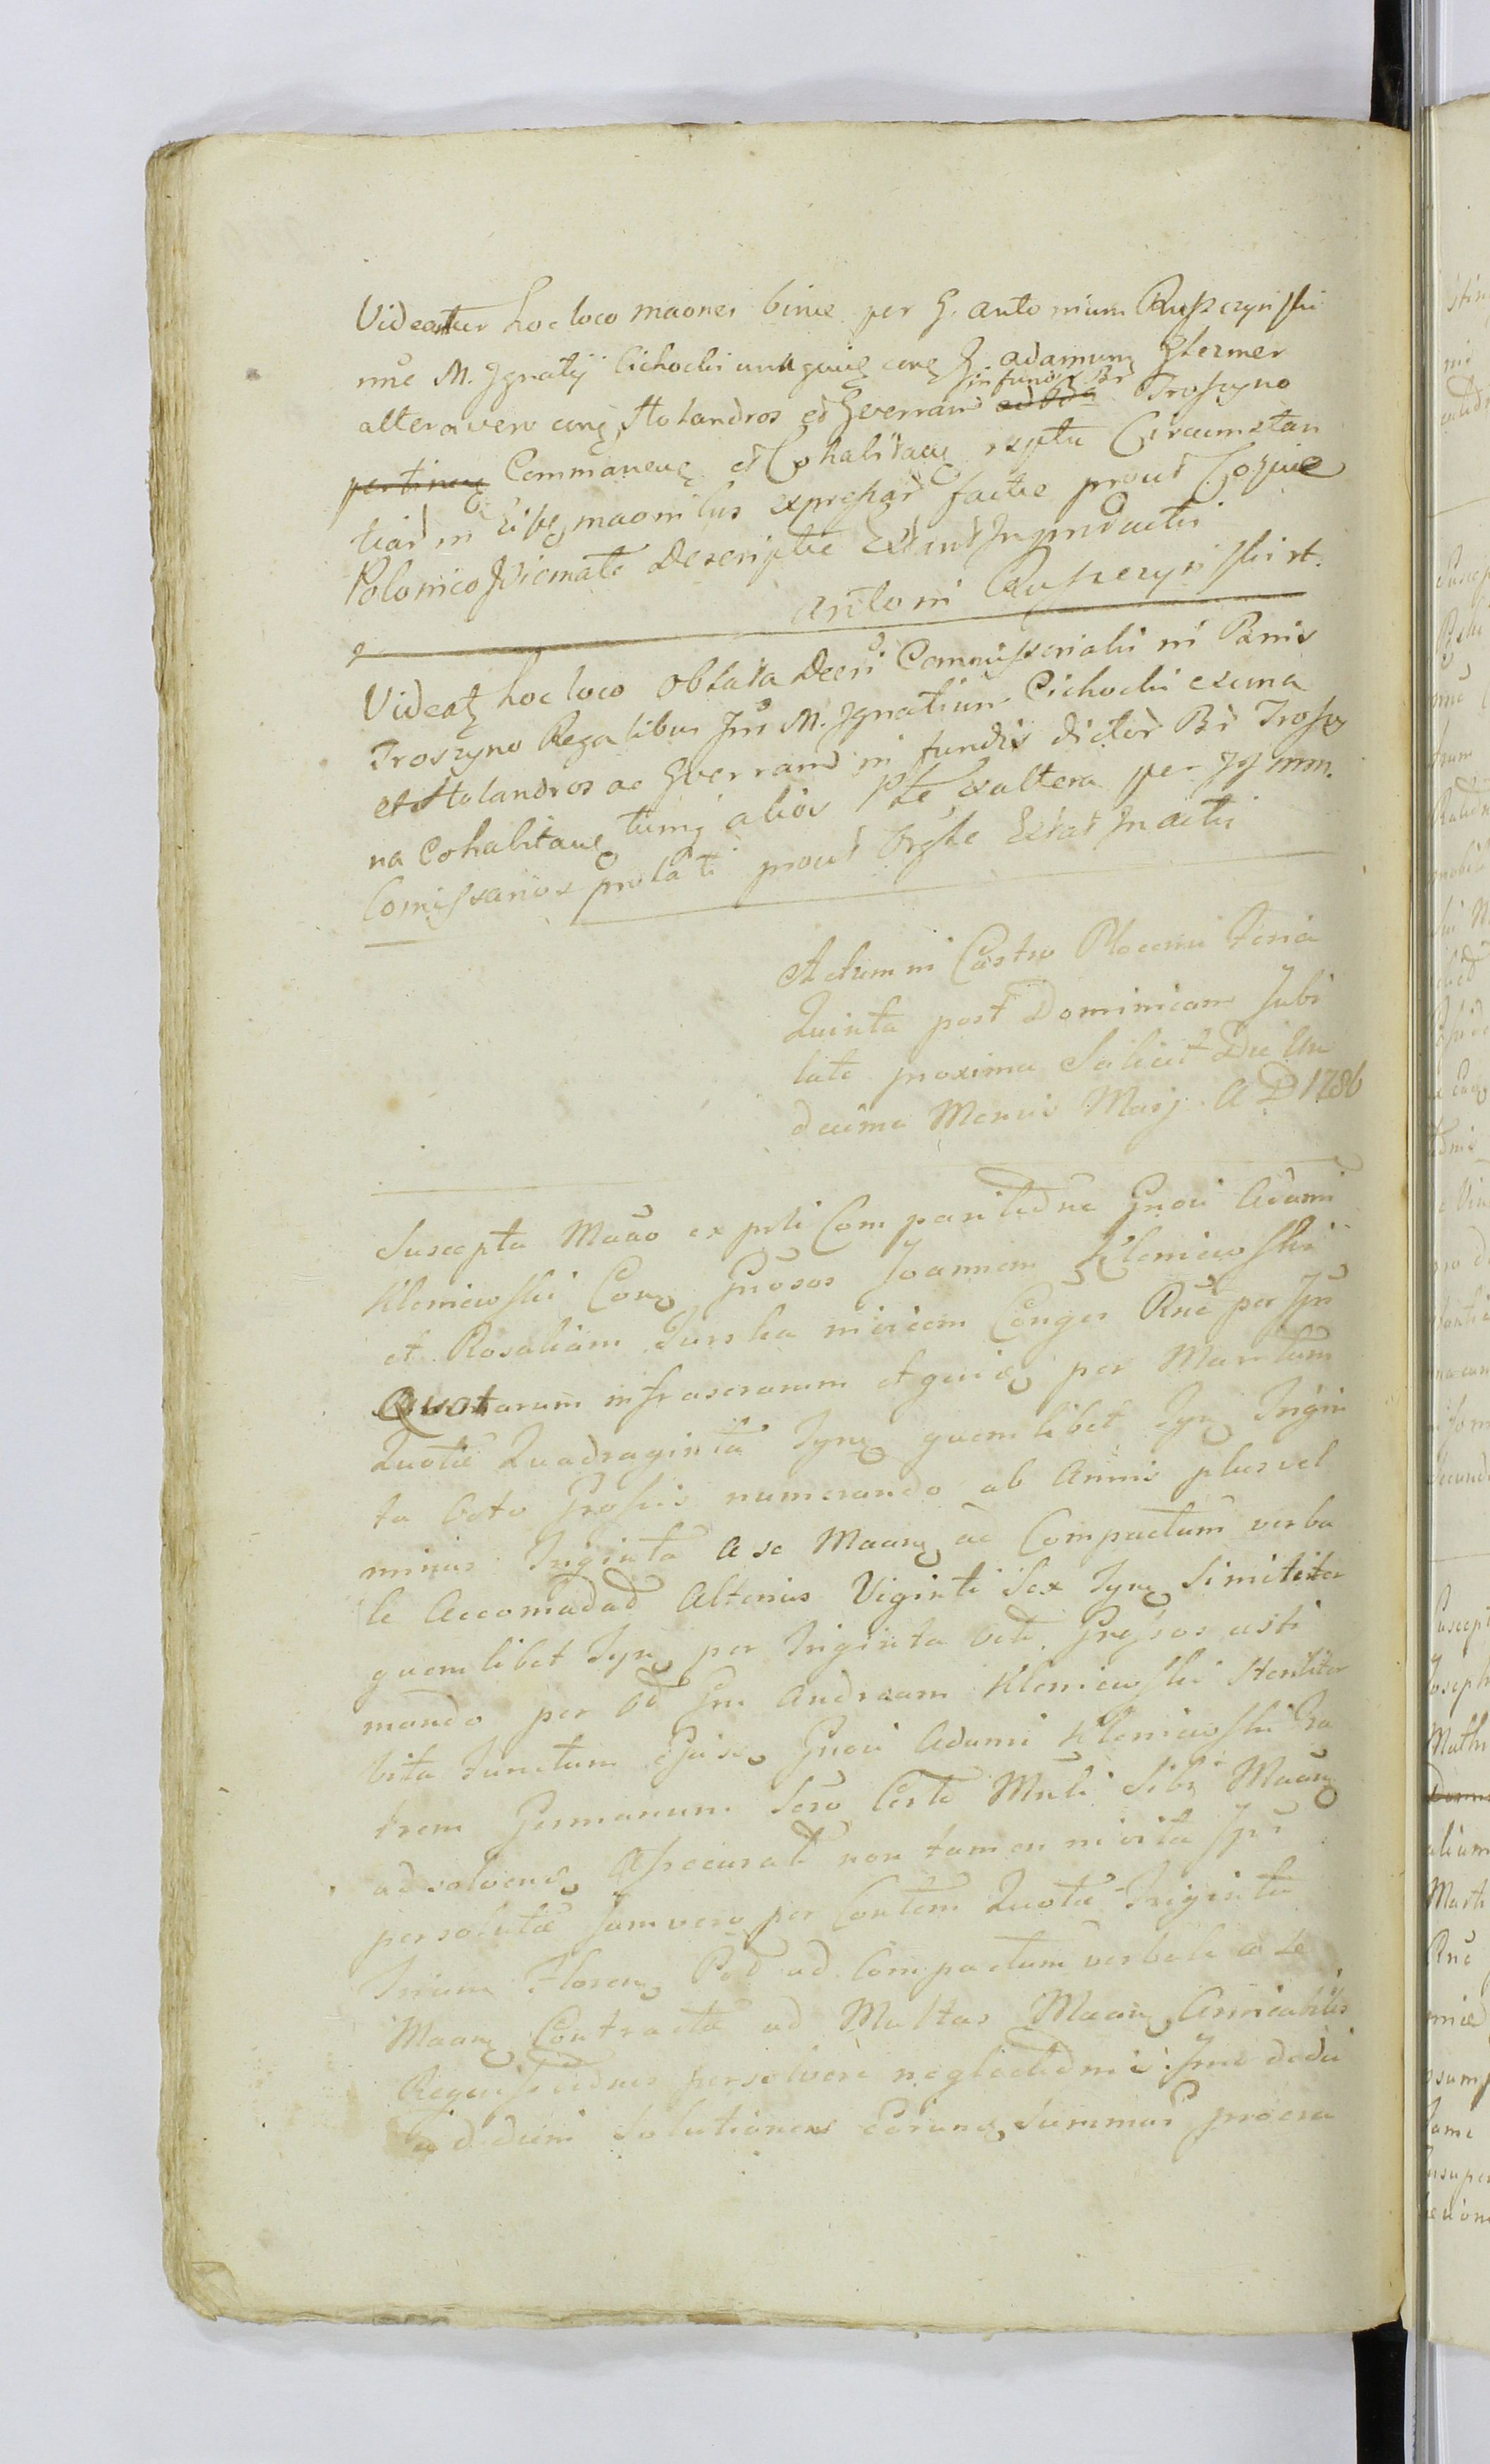 Videantur hoc loco maones binæ per G. Antonium Ruszczynski
nñe M. Ignatij Cichocki una quiq conq G. Adamum Glezmer
altera vero conq Holandros et Gverrand in fundis Br Troszyno
Commaneng et Cohabitang rõptu Circumstan
tiad in Eisdq maonibus expressad factæ prout Copiæ
Polonico Idiomate Descriptæ Extant In pndactis
Antoni Ruszczynski rt.
Videatq hoc loco Oblata Decri Commisserialis in Bonis
Troszyno Regalibus Inr M. Ignatium Cichocki ex una
et Holandros ac Gverrand in fundis dictor Br Troszy
na Cohabitang tumq alios Pte ex altera per Jg mm.
Comissarios prolati prout Orgle Extat In actis
Actum in Castro Plocensi Feria
Quinta post Dominicam Jubi
late proxima Scilicet Die Un
decima Mensis Maij A D 1786
Suscepta Maõo ex prli Comparitione Gnosi Adami
Kleniewski Conq Gnosos Joannem Kleniewski
et Rosaliam Turska invicem Conges Rñe per Ipr
Quotarum infrascrarum et quiq per Maritum
Quotæ Quadraginta Tynq quemlibet Tynq Trigin
ta Octo Grossis numerando ab Annis plus vel
minus Triginta a se Maanq ad Compactum verba
le Accomodad Alterius Viginti Sex Tynq Similiter
quemlibet Tynq per Triginta Octo Grossos aesti
mando per Od Gm Andream Kleniewski Steriliter
Vita Functum Gnosi Adami Kleniewski Fra
trem Germanum Sero Certe Mnli Sibi Maanq
adsolvendq Assecurati non tamen in vita Ipr
persolutæ Jam vero per Contem Quotæ Triginta
Trium Florenq Pol ad Compactum verbale a se
Maanq Contractæ ad Multas Maanq Amicabiles
Requisitiones persolvere neglectionis: Imo dedu
Solutionem Earunq Summar procra